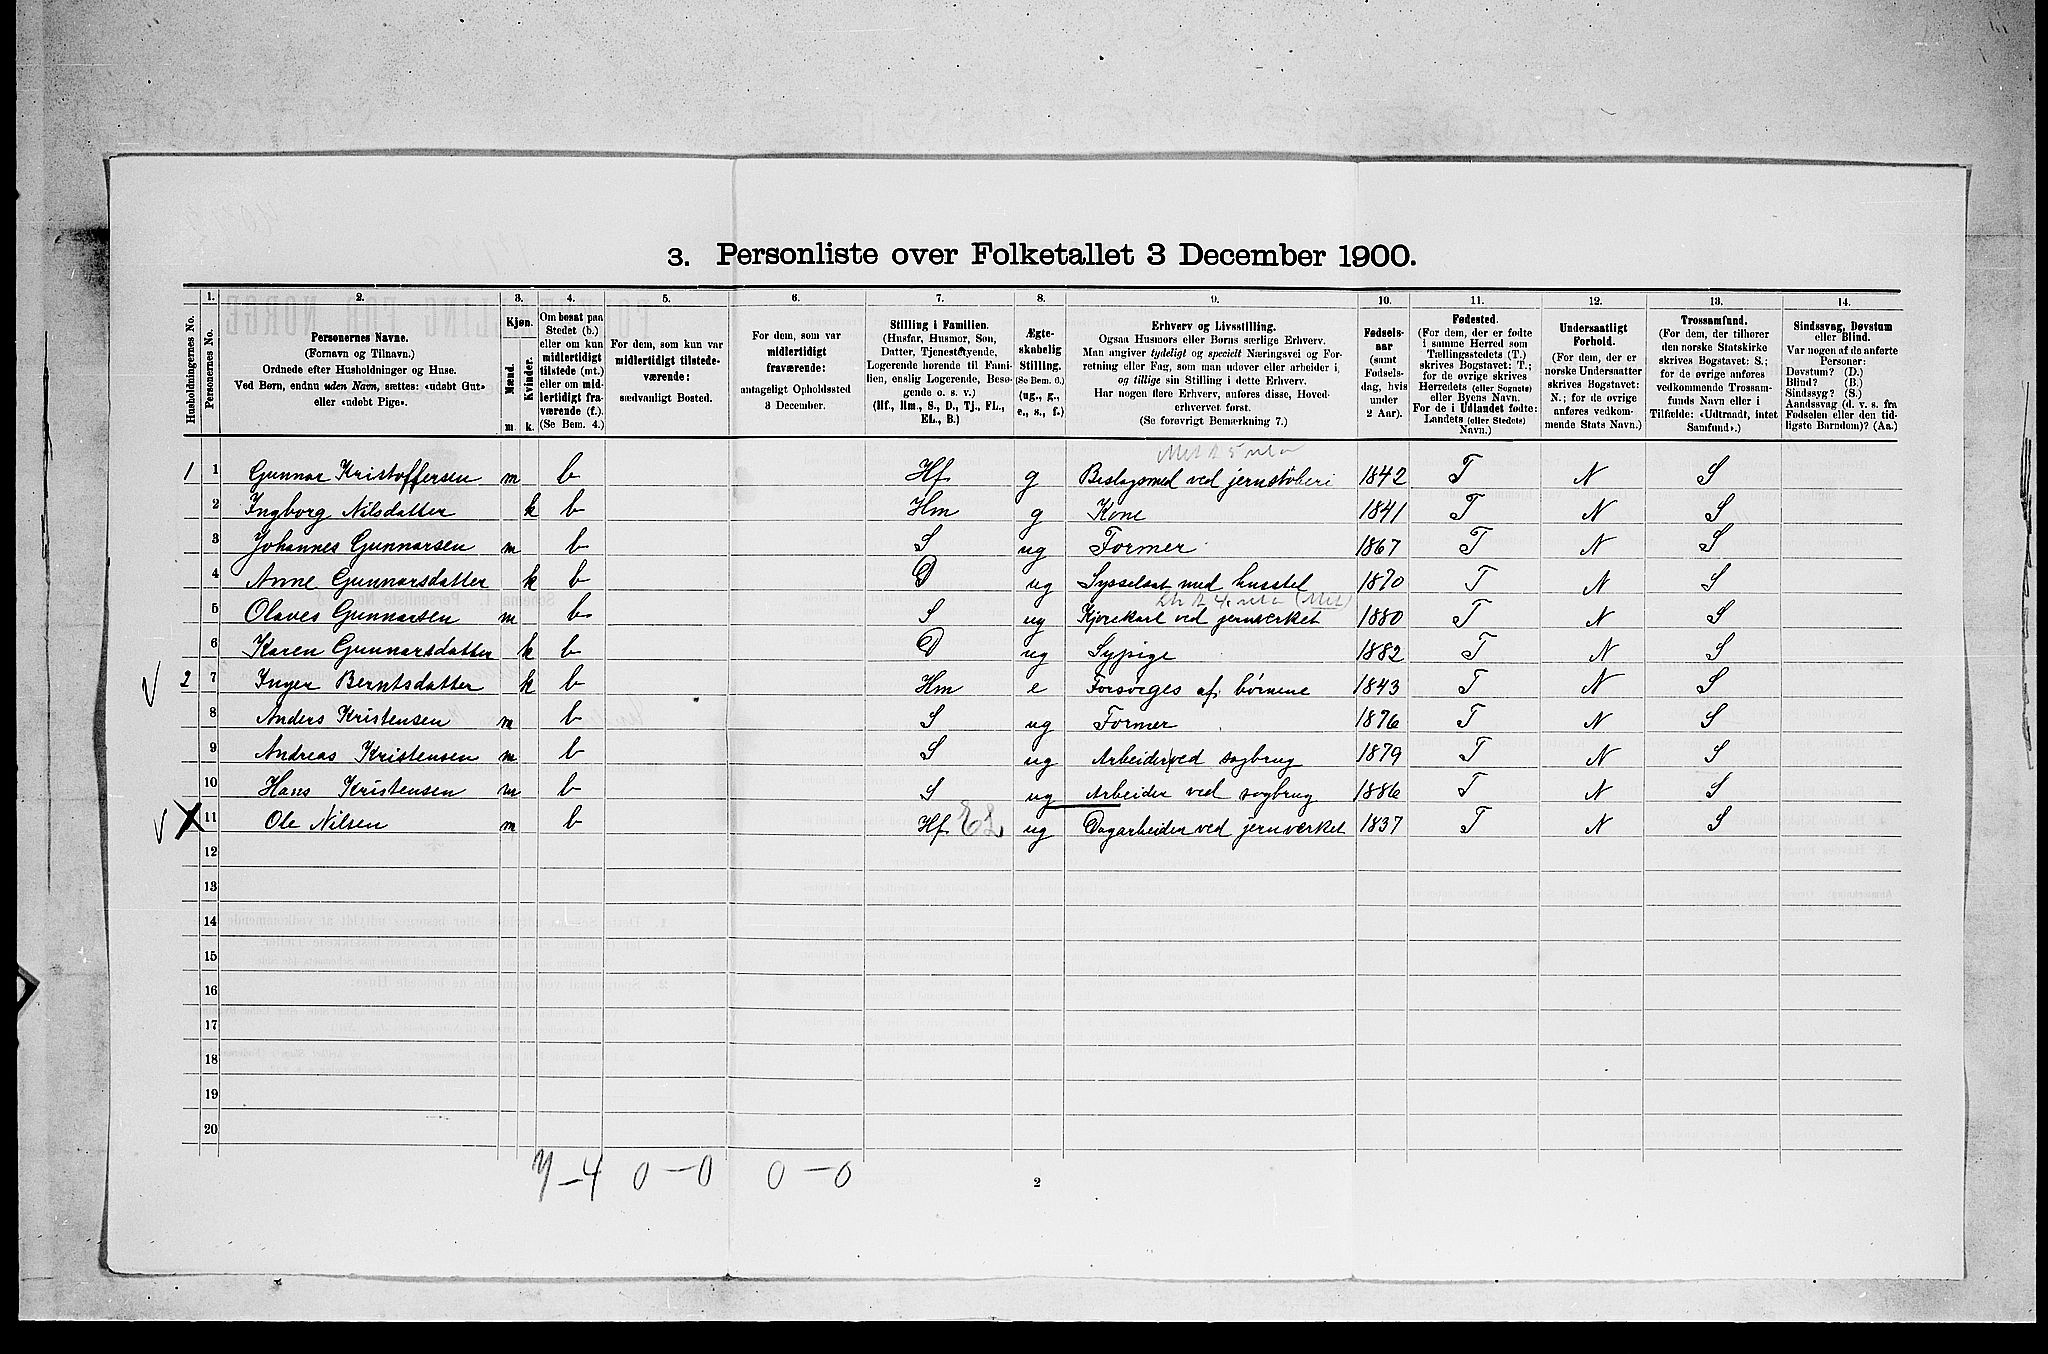 3. Personliste over Folketallet 3 December 1900.
1. 2. 3. 4. 5. 6. 7. 8. 9. 10. 11. 12. 13. 14.
Husholdningernes No.
Personernes No.
Personernes Navne.
(Fornavn og Tilnavn.)
Ordnede efter Husholdninger og Huse.
Ved Børn, endnu uden Navn, sættes: «udøbt Gut»
eller «udøbt Pige».
Kjøn.
Mænd.
Kvinder.
m. k.
Om bosat paa
Stedet (b.)
eller om kun
midlertidigt
tilstede (mt.)
eller om mid-
lertidigt fra-
værende (f.).
(Se Bem. 4.)
For dem, som kun var
midlertidigt tilstede-
værende:
sædvanligt Bosted.
For dem, som var
midlertidigt
fraværende:
antageligt Opholdssted
3 December.
Stilling i Familien.
(Husfar, Husmor, Søn,
Datter, Tjenestetyende,
Logerende hørende til Fami-
lien, enslig Logerende, Besø-
gende o. s. v.)
(Hf., Hm., S., D., Tj., FL.,
EL., B.)
Ægte-
skabelig
Stilling.
(Se Bem. 6.)
(ug., g.,
e., s., f.)
Erhverv og Livsstilling.
Ogsaa Husmors eller Børns særlige Erhverv.
Man angiver tydeligt og specielt Næringsvei og For-
retning eller Fag, som man udøver eller arbeider i,
og tillige sin Stilling i dette Erhverv.
Har nogen flere Erhverv, anføres disse, Hoved-
erhvervet først.
(Se forøvrigt Bemærkning 7.)
Fødsels-
aar
(samt
Fødsels-
dag, hvis
under
2 Aar).
Fødested.
(For dem, der er fødte
i samme Herred som
Tællingsstedets (T.)
skrives Bogstavet: T.;
for de øvrige skrives
Herredets (eller Sognets)
eller Byens Navn.
For de i Udlandet fødte:
Landets (eller Stedets)
Navn.)
Undersaatligt
Forhold.
(For dem, der er
norske Undersaatter
skrives Bogstavet:
N.; for de øvrige
anføres vedkom-
mende Stats Navn.)
Trossamfund.
(For dem, der tilhører
den norske Statskirke
skrives Bogstavet: S.;
for de øvrige anføres
vedkommende Trossam-
funds Navn eller i
Tilfælde: «Udtraadt, intet
Samfund».)
Sindssvag, Døvstum
eller Blind.
Var nogen af de anførte
Personer:
Døvstum? (D.)
Blind? (B.)
Sindssyg? (S.)
Aandssvag (d. v. s. fra
Fødselen eller den tid-
ligste Barndom)? (Aa.)
1 1 Gunnar Kristoffersen m b Hf g Beslagsmed ved jernstøberi 1842 T N S
2 Ingborg Nilsdatter k b Hm g Kone 1841 T N S
3 Johannes Gunnarsen m b S ug Former 1867 T N S
4 Anne Gunnarsdatter k b D ug Sysselsat med husstel 1870 T N S
5 Olaves Gunnarsen m b S ug Kjørekarl ved jernverket 1880 T N S
6 Karen Gunnarsdatter k b D ug Sypige 1882 T N S
2 7 Inger Berntsdatter k b Hm e Forsørges af børnene 1843 T N S
8 Anders Kristensen m b S ug Former 1876 T N S
9 Andreas Kristensen m b S ug Arbeider ved sagbrug 1879 T N S
10 Hans Kristensen m b S ug Arbeider ved sagbrug 1886 T N S
X 11 Ole Nilsen m b Hf EL ug Dagarbeider ved jernverket 1837 T N S
12
13
14
15
16
17
18
19
20
7-4 0-0 0-0
2